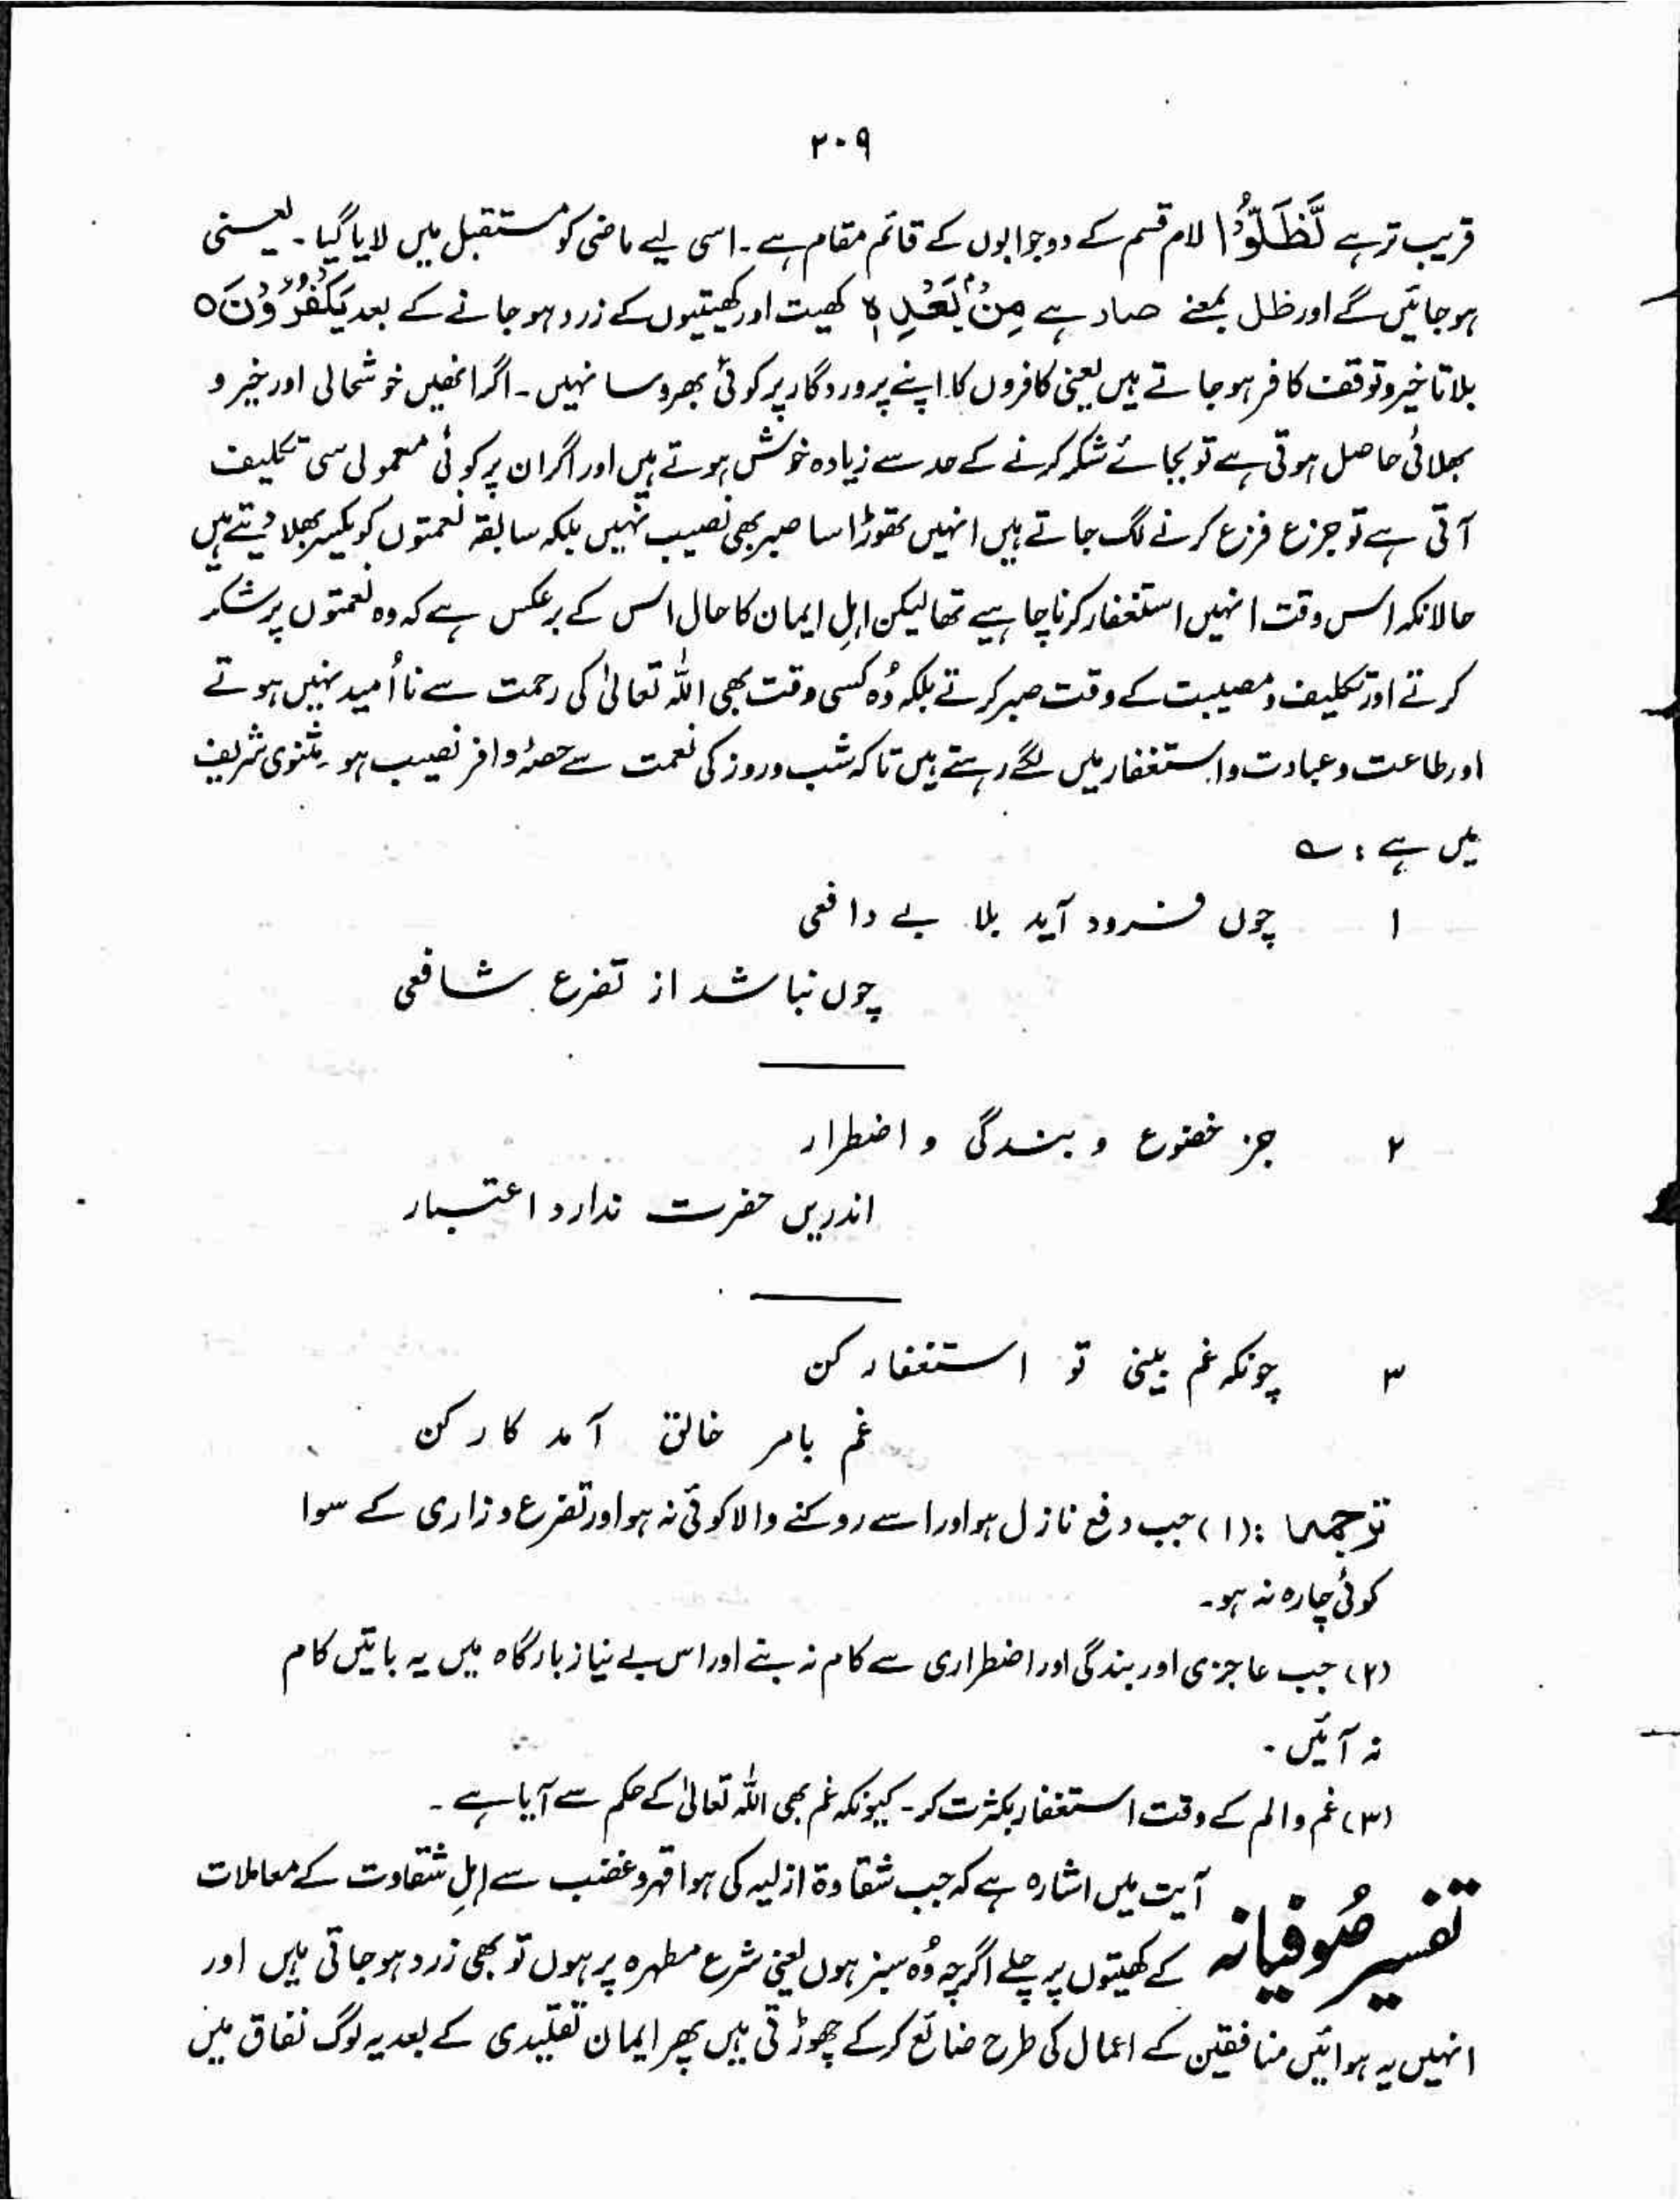 ۲۰۹
قریب تر ہے لَّظَلُّوْا لام قسم کے دو جوابوں کے قائم مقام ہے۔ اسی لیے ماضی کو مستقبل میں لایا گیا۔ یعنی
ہو جائیں گے اور ظل بمعنے صار ہے مِنْۢ بَعْدِہٖ کھیت اور کھیتیوں کے زرد ہو جانے کے بعد یَکْفُرُوْنَ ○
بلا تاخیر و توقف کافر ہو جاتے ہیں یعنی کافروں کا اپنے پروردگار پر کوئی بھروسا نہیں۔ اگر انھیں خوشحالی اور خیر و
بھلائی حاصل ہوتی ہے تو بجائے شکر کرنے کے حد سے زیادہ خوش ہوتے ہیں اور اگر ان پر کوئی معمولی سی تکلیف
آتی ہے تو جزع فزع کرنے لگ جاتے ہیں انہیں تھوڑا سا صبر بھی نصیب نہیں بلکہ سابقہ نعمتوں کو یکسر بھلا دیتے ہیں
حالانکہ اس وقت انہیں استغفار کرنا چاہیے تھا لیکن اہلِ ایمان کا حال اس کے برعکس ہے کہ وہ نعمتوں پر شکر
کرتے اور تکلیف و مصیبت کے وقت صبر کرتے بلکہ وُہ کسی وقت بھی اللہ تعالیٰ کی رحمت سے نا اُمید نہیں ہوتے
اور طاعت و عبادت و استغفار میں لگے رہتے ہیں تاکہ شب و روز کی نعمت سے حصۂ وافر نصیب ہو۔ مثنوی شریف
میں ہے : ؎
۱ چوں فرود آید بلا بے دافعی
چوں نباشد از تضرع شافعی
۲ جز خضوع و بندگی و اضطرار
اندریں حضرت ندارد اعتبار
۳ چونکہ غم بینی تو استغفار کن
غم بامر خالق آمد کار کن
ترجمہ : (۱) جب دفع نازل ہو اور اسے روکنے والا کوئی نہ ہو اور تضرع و زاری کے سوا
کوئی چارہ نہ ہو۔
(۲) جب عاجزی اور بندگی اور اضطراری سے کام نہ بنے اور اس بے نیاز بارگاہ میں یہ باتیں کام
نہ آئیں۔
(۳) غم و الم کے وقت استغفار بکثرت کر۔ کیونکہ غم بھی اللہ تعالیٰ کے حکم سے آیا ہے۔
تفسیر صُوفیانہ آیت میں اشارہ ہے کہ جب شقاوۃ ازلیہ کی ہوا قہر و غضب سے اہلِ شقاوت کے معاملات
کے کھیتوں پر چلے اگرچہ وُہ سبز ہوں یعنی شرع مطہرہ پر ہوں تو بھی زرد ہو جاتی ہیں اور
انہیں یہ ہوائیں منافقین کے اعمال کی طرح ضائع کرکے چھوڑتی ہیں پھر ایمان تقلیدی کے بعد یہ لوگ نفاق میں